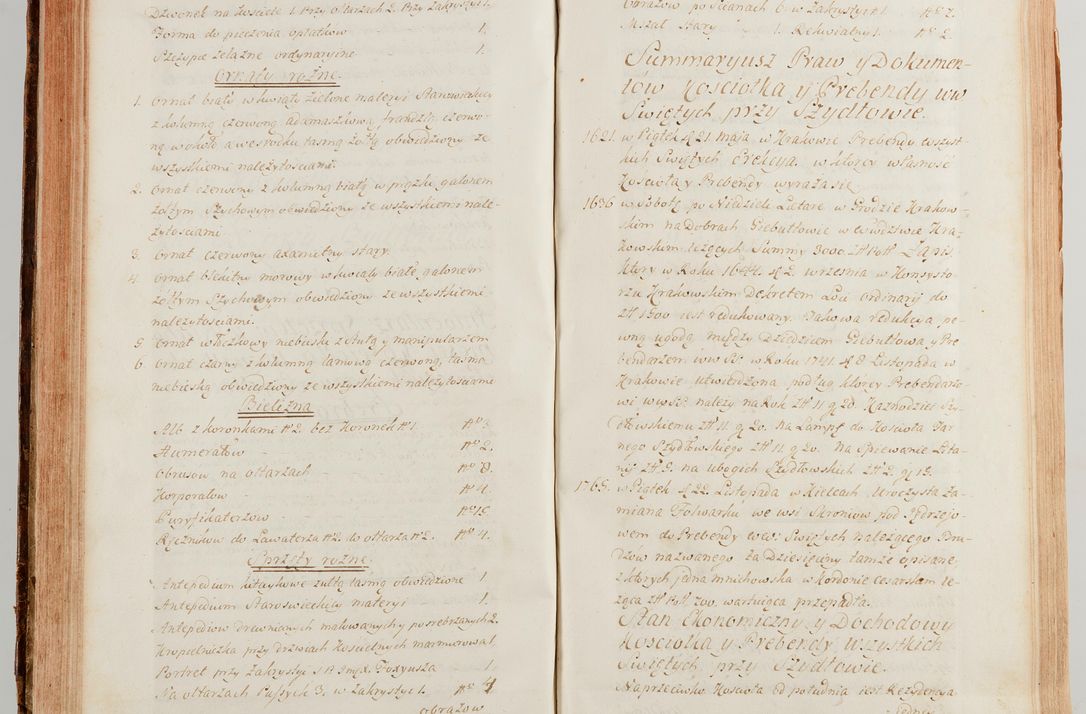 Dzwonek na Kościele 1. Przy ołtarzach 2. Przy Zakrystyi 1.
Forma do pieczenia opłatków 1.
Szczypce żelazne ordynaryine 1.
Ornaty rożne.
1. Ornat biały w kwiaty zielone materyi Staroświeckiey
z kolumną czerwoną adamaszkową, frandzlą czerwo-
ną wokoło a we srodku tasmą żołtą obwiedziony ze
wszystkiemi należytosciami.
2. Ornat czerwony z kolumną białą w prążki, galonem
żołtym Szychowym obwiedziony ze wszystkiemi nale-
żytościami
3. Ornat czerwony axamitny stary.
4. Ornat błękitny morowy w kwiaty białe, galonem
żołtym Szychowym obwiedziony ze wszystkiemi
należytościami.
5. Ornat włoczkowy niebieski z stułą y manipularzem
6. Ornat czarny z kolumną lamową czerwoną, tasmą
niebieską obwiedziony ze wszystkiemi należytościami
Bielizna
Alb z koronkami No 2. bez Koronek No 1. No 3.
Humerałow - No 2.
Obrusow na ołtarzach - No 8.
Korporałow - No 4.
Puryfikaterzow - No 15.
Ręcznikow do Lawaterza No 2. do ołtarza No 2. No 4.
Sprzęty rożne
Antepedium kitaykowe żułtą tasmą obwiedzione 1.
Antepedium Staroswieckiey materyi 1.
Antepediow drewnianych malowanych y posrebrzanych 2.
Kropielniczka przy drzwiach kościelnych marmurowa 1.
Portret przy Zakrystyi S.P. Jmx. Foxyusza - 1.
Na ołtarzach Passyik 3. w Zakrystyi 1. No 4
obrazow
Obrazow po Scianach 6. w Zakrystyi 1 No 7.
Mszał Stary 1. Rekwialny 1. No 2.
Summaryusz Praw y Dokumen-
tow Kosciołka y Prebendy ww
Swiętych przy Szydłowie.
1621. w Piątek d. 21 maja w Krakowie Prebendy wszyst-
kich Swiętych Erekcya, w ktorey własność
Kościoła y Prebendy wyraża się
1636 w Sobotę po Niedzieli Lætare w Grodzie Krakow-
skim na Dobrach Giebułtowie w Woiewdztwie Kra-
kowskim leżących Summy 3000. zł Pol Zapis.
Ktory w Roku 1644. d. 2. wrzesnia w Konsysto-
rzu Krakowskim Dekretem Loci Ordinarij do
zł 1500 iest redukowany. Takowa redukcya pe-
wną ugodą między Dziedzicem Giebułtowa, y Pre-
bendarzem ww SS. w Roku 1741. d. 8. Listopada w
Krakowie utwierdzona podług ktorey Prebendarzo-
wi ww SS. należy na Rok zł 11. g. 20. Kaznodziei Szy-
dłowskiemu zł 11. g 20. Na Lampę do Kościoła Far
nego Szydłowskiego zł 11. g 20. Na Spiewanie Lita-
nij zł 9. na ubogich Szydłowskich zł 2. g 15.
1765. w Piątek d. 22. Listopada w Kielcach, Uroczysta Za-
miana Folwarku we wsi Skroniow pod Jędrzejo-
wem do Prebendy ww: Swiętych należącego Bru-
dzow nazwanego za Dziesięciny tamże opisane
z których jedna mnichowska w Kordonie Cesarskim le-
żąca zł Pol. 700. wartuiąca przepadła.
Stan Ekonomiczny y Dochodowy
Kosciołka y Prebendy wszystkich
Swiętych przy Szydłowie.
Naprzeciwko Kosciołka od południa iest Rezydencya